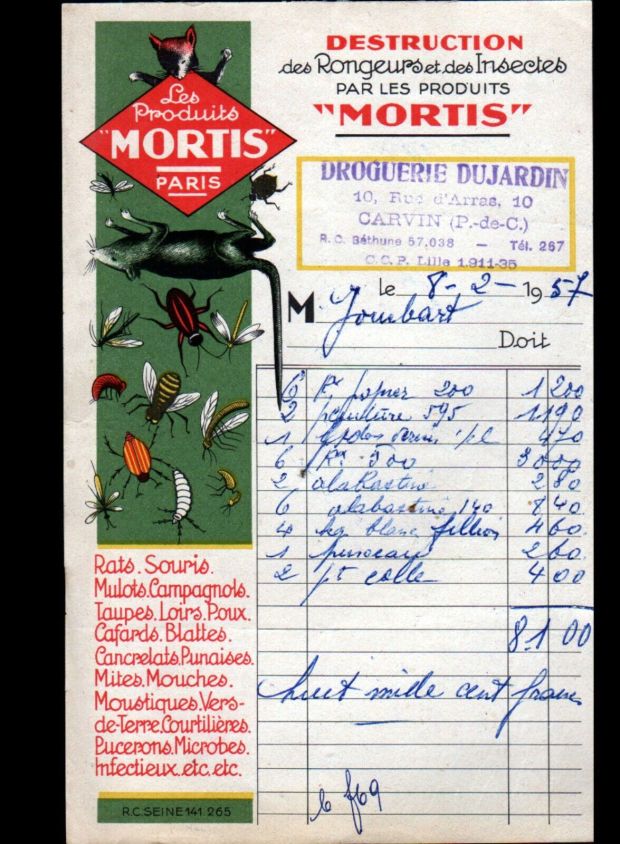 Les
Produits
"MORTIS"
PARIS
DESTRUCTION
des Rongeurs et des Insectes
PAR LES PRODUITS
"MORTIS"
DROGUERIE DUJARDIN
10, Rue d'Arras, 10
CARVIN (P.-de-C.)
R.C. Béthune 57.038 — Tél. 267
C.C.P. Lille 1.911-35
le 8-2-1957
M. Jombart
Doit
6 papier 200 1 200
2 peinture 595 1190
1 470
6 500 3000
2 alabastine 280
6 alabastine 140 840
4 kg blanc 460
1 pinceau 260
2 pt colle 400
8100
huit mille cent francs
Rats. Souris.
Mulots.Campagnols.
Taupes. Loirs. Poux.
Cafards. Blattes.
Cancrelats.Punaises.
Mites. Mouches.
Moustiques.Vers-
de-Terre.Courtilières.
Pucerons.Microbes.
Infectieux.etc.etc.
R.C.SEINE 141 265